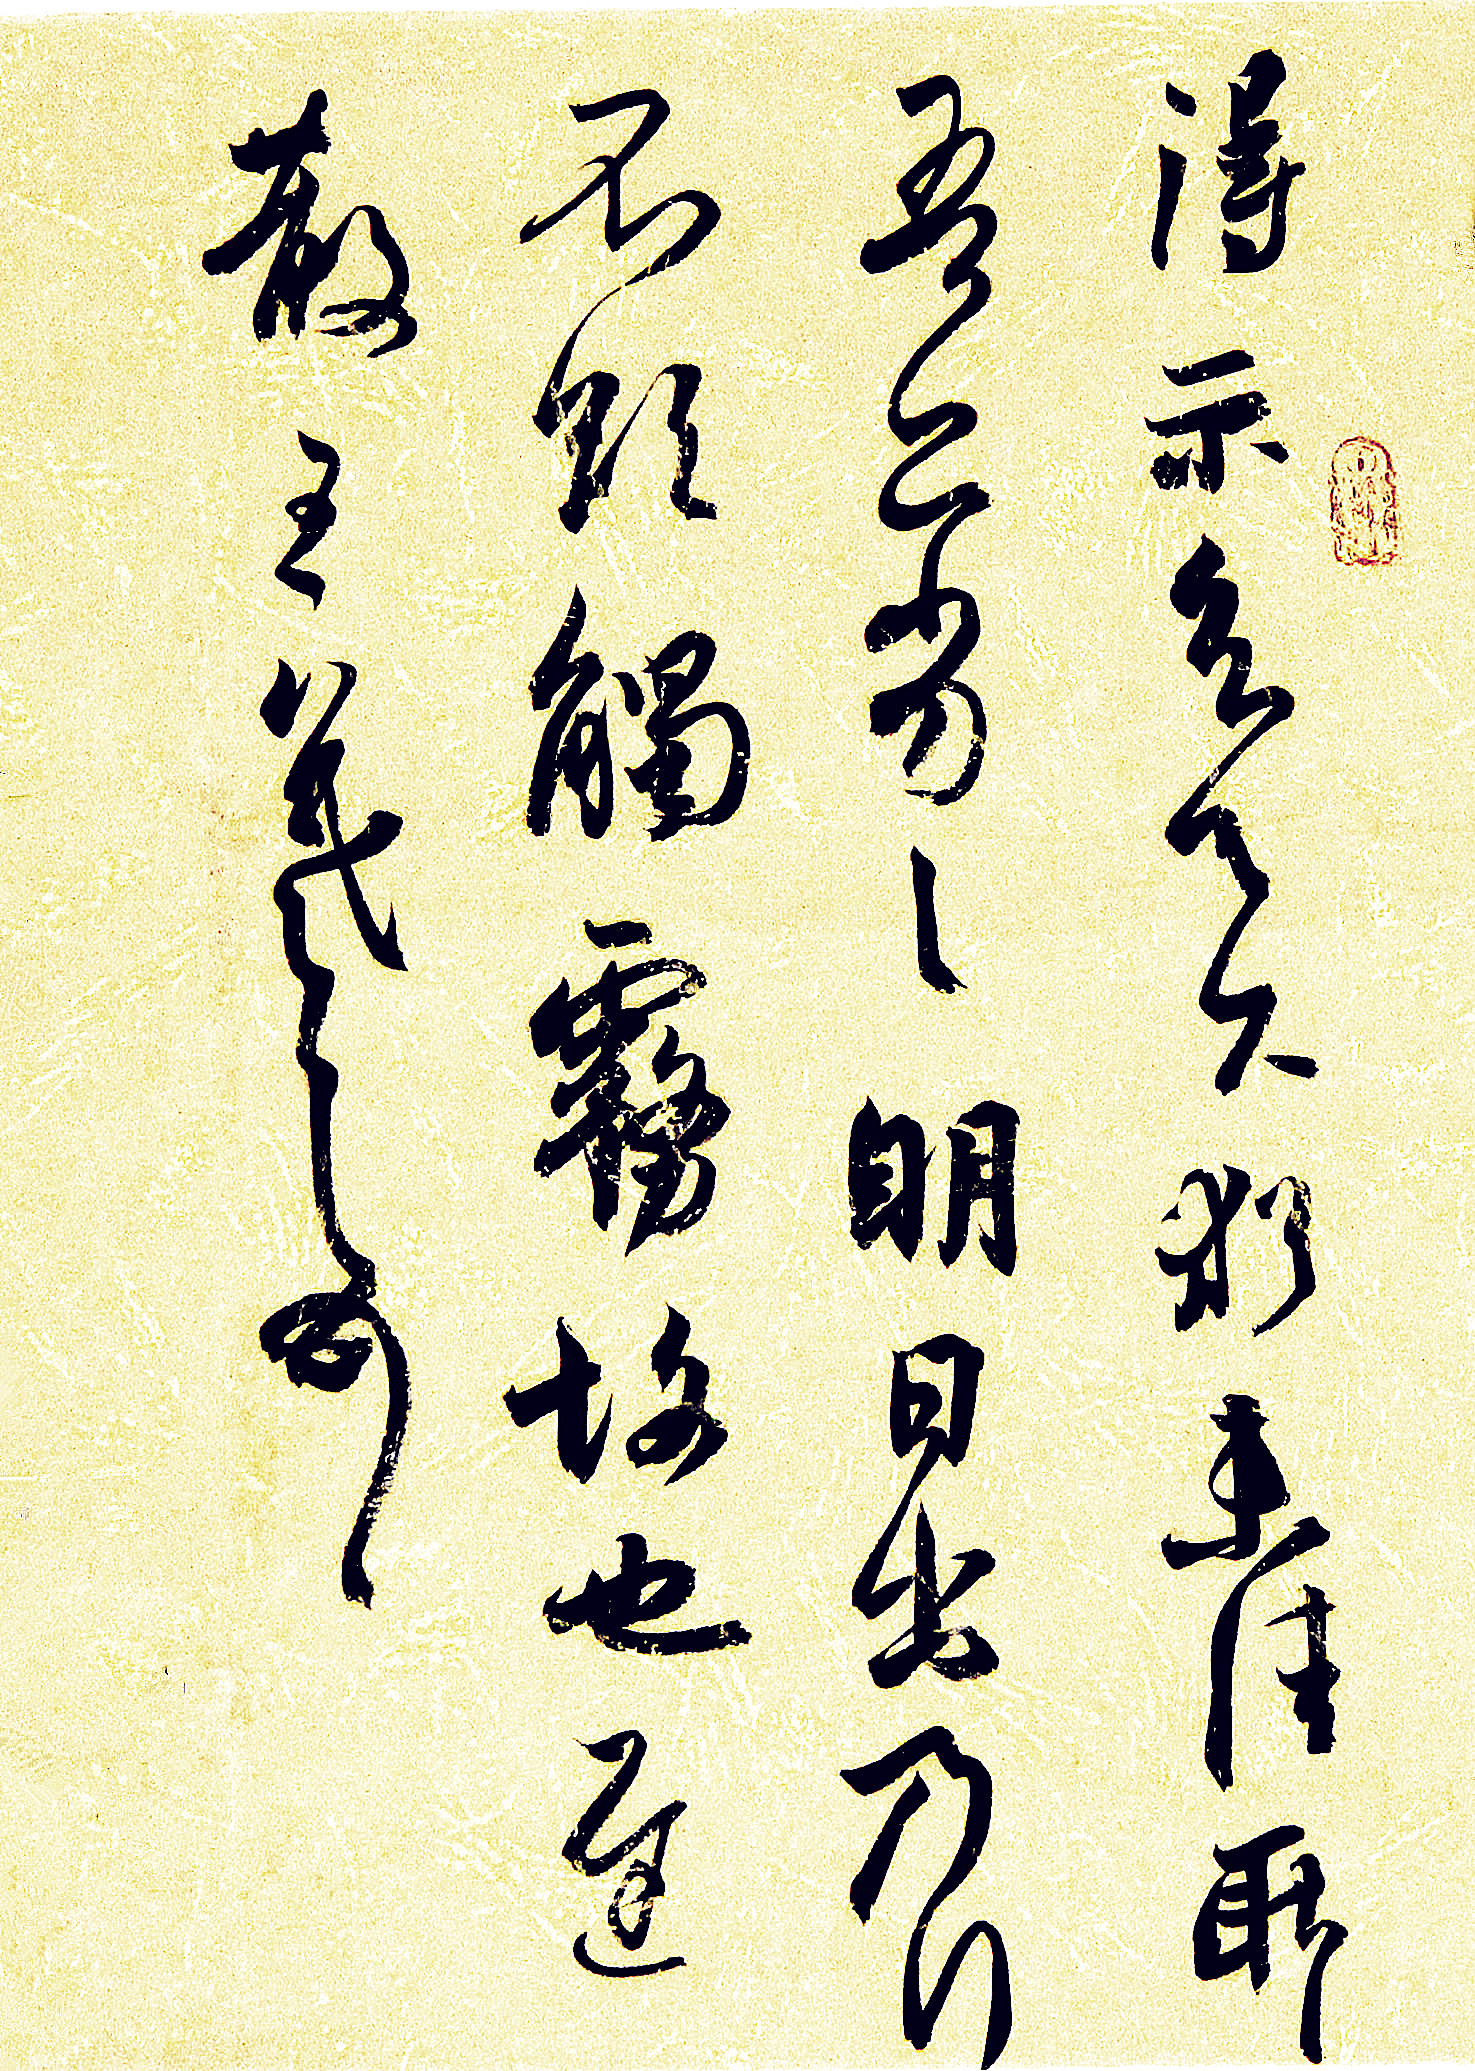 得示知足下猶未佳耶
吾亦劣劣明日出乃行
不欲觸霧故也遲
散王羲之頓首